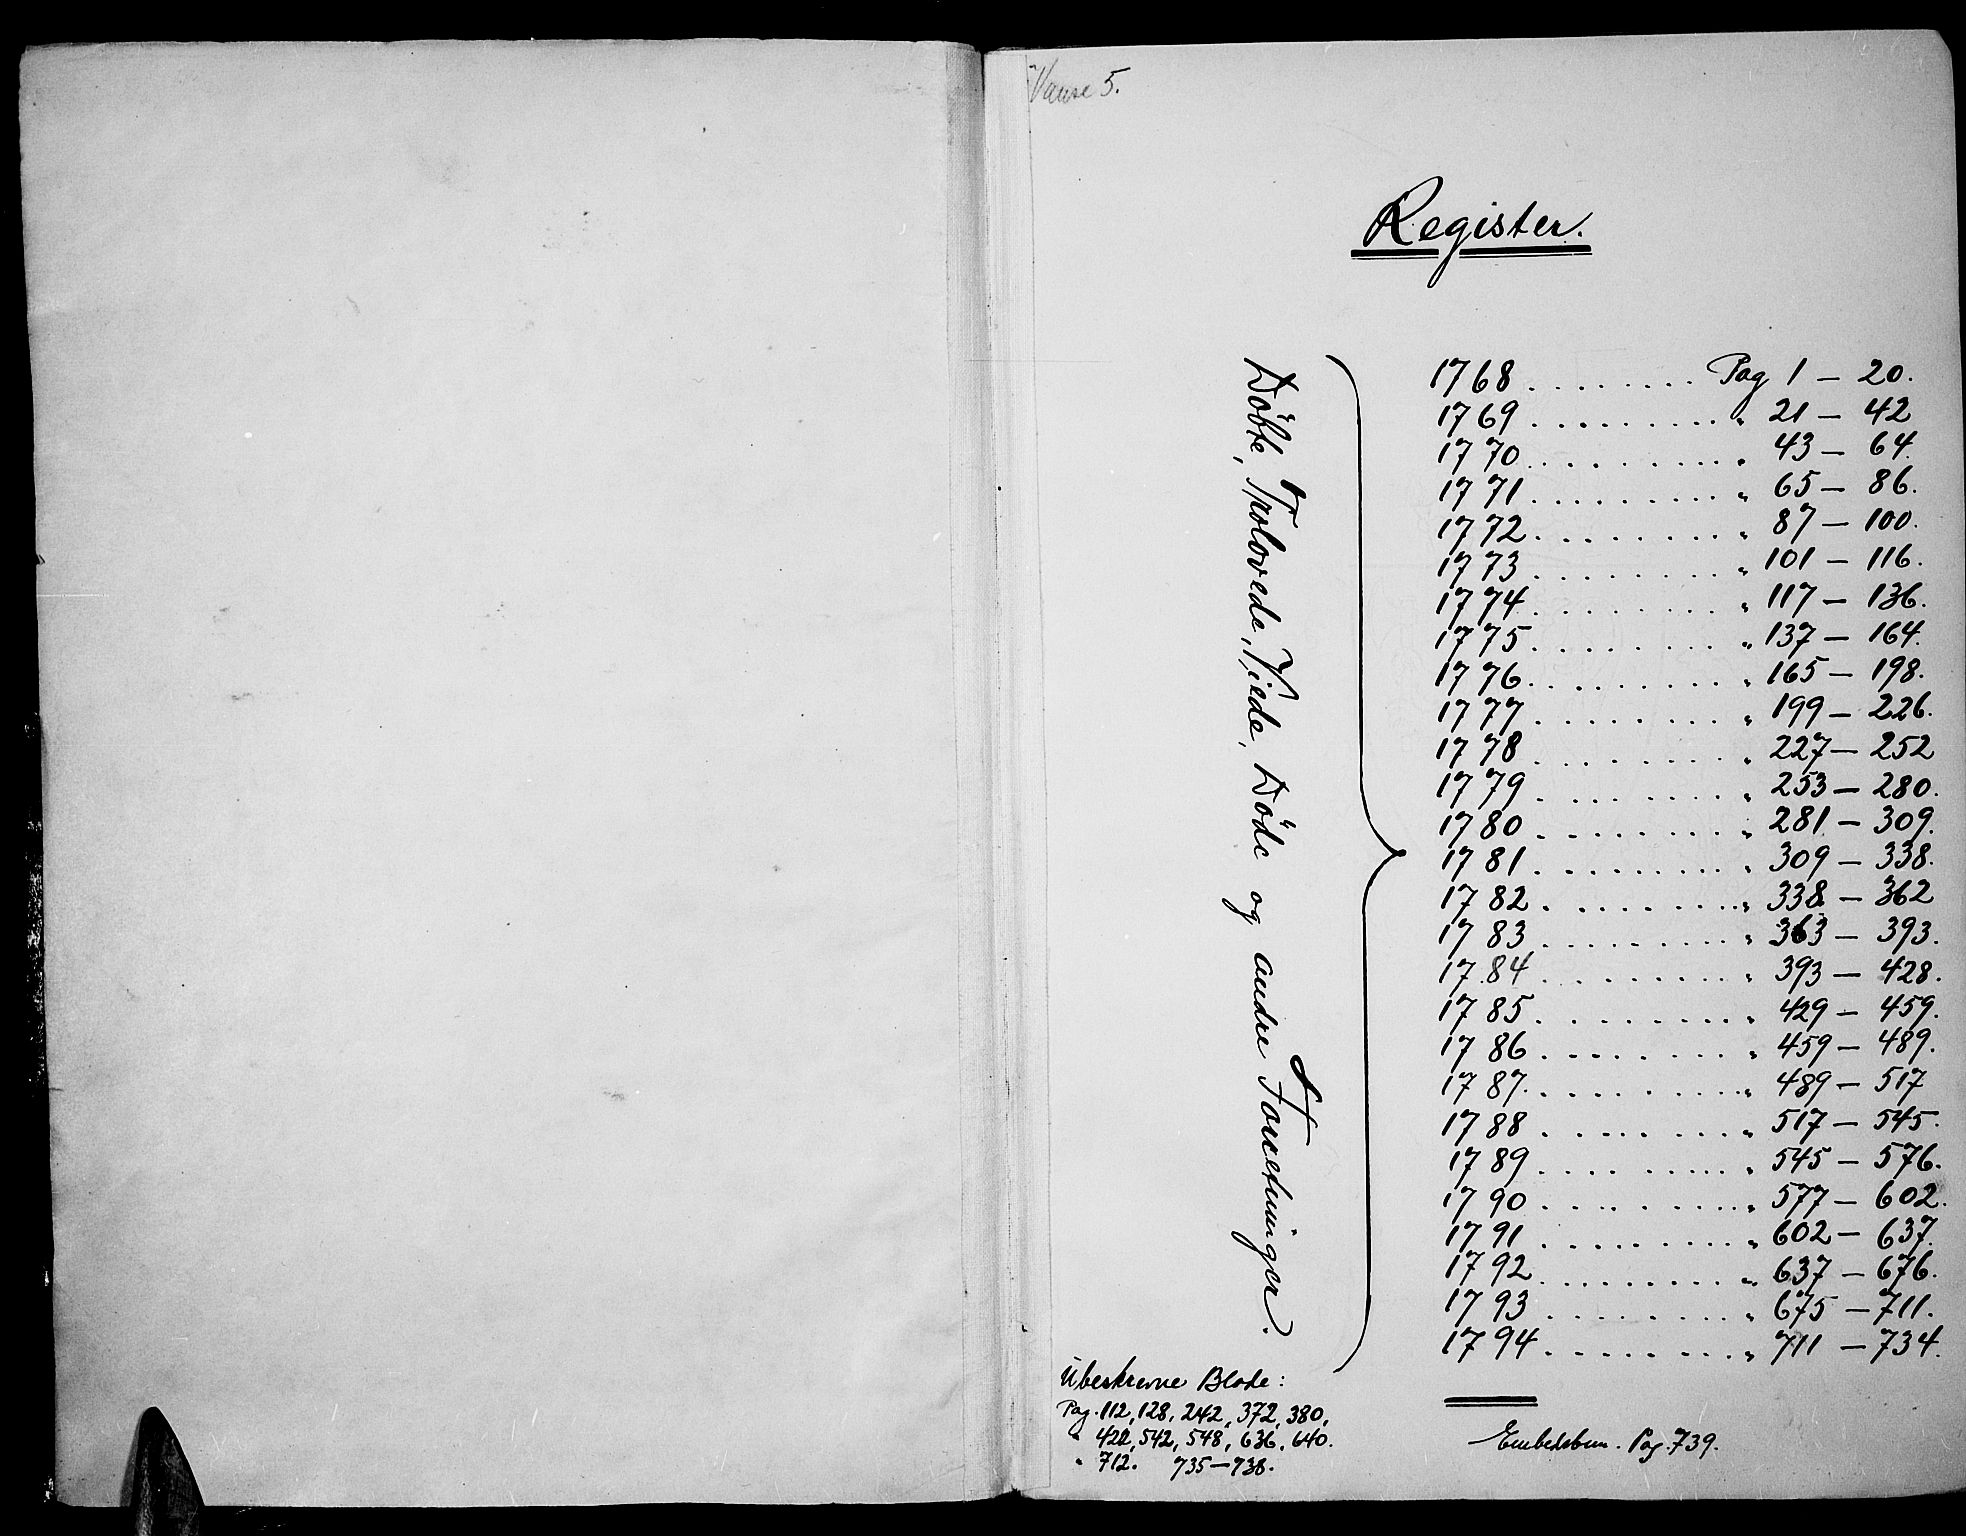 Vanse 5.
Register.
Döbte, Trolovede, Viede, Döde og andre Forretninger.
1768 ........ Pag 1 — 20.
1769 ......... " 21 — 42
1770 ......... " 43 — 64.
1771 ......... " 65 — 86.
1772 ......... " 87 — 100.
1773 ......... " 101 — 116.
1774 ......... " 117 — 136.
1775 ......... " 137 — 164.
1776 ......... " 165 — 198.
1777 ......... " 199 — 226.
1778 ......... " 227 — 252
1779 ......... " 253 — 280.
1780 ......... " 281 — 309.
1781 ......... " 309 — 338.
1782 ......... " 338 — 362
1783 ......... " 363 — 393.
1784 ......... " 393 — 428.
1785 ......... " 429 — 459.
1786 ......... " 459 — 489.
1787 ......... " 489 — 517
1788 ......... " 517 — 545.
1789 ......... " 545 — 576.
1790 ......... " 577 — 602.
1791 ......... " 602 — 637.
1792 ......... " 637 — 676.
1793 ......... " 675 — 711.
1794 ......... " 711 — 734.
Ubeskrevne Blade:
Pag. 112, 128, 242, 372, 380,
" 422, 542, 548, 636, 640.
" 712. 735 — 738.
Embedsbun. Pag. 739.